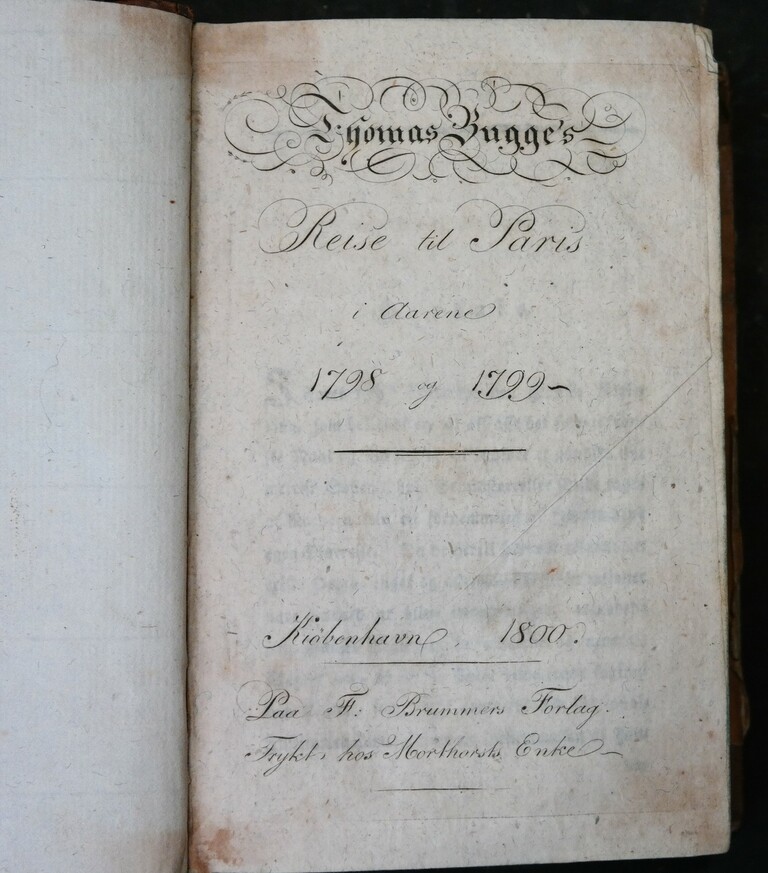 Thomas Bugge's
Reise til Paris
i Aarene
1798 og 1799
Kiöbenhavn, 1800.
Paa F: Brummers Forlag.
Trykt hos Morthorsts Enke